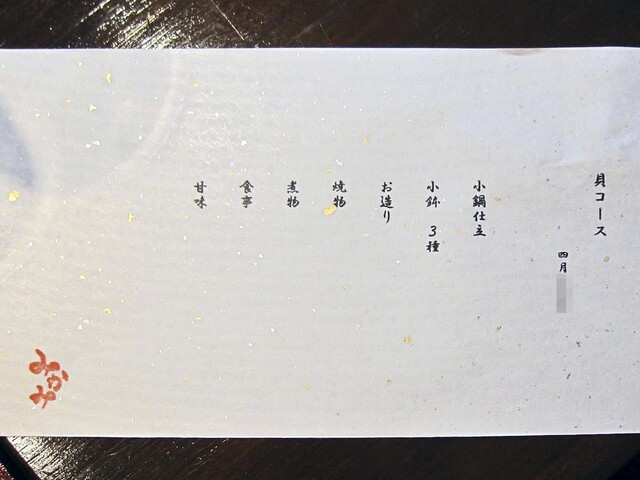 貝コース
四月
小鍋仕立
小鉢 3種
お造り
焼物
煮物
食事
甘味